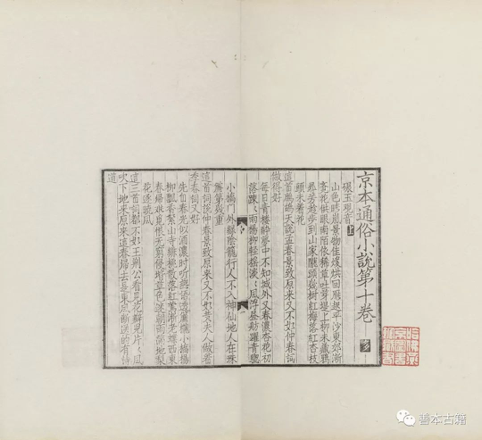 京本通俗小說第十卷
碾玉观音 上
山色晴嵐景物佳煖烘回雁起平沙東郊漸
覺花供眼南陌依稀草吐芽堤上柳未藏鴉
尋芳趁步到山家隴頭幾樹紅梅落紅杏枝
頭未着花
這首鷓鴣天說孟春景致原來又不如仲春詞
做得好
每日青樓醉夢中不知城外又春濃杏花初
落疎疎雨楊柳輕搖淡淡風浮畫舫躍青驄
小橋門外綠陰籠行人不入神仙地人在珠
簾第幾重
這首詞說仲春景致原來又不如黃夫人做着
季春詞又好
先自春光似酒濃時聽燕語透簾櫳小橋楊
柳飄香絮山寺緋桃散落紅鶯漸老蝶西東
春歸難覓恨無窮侵堦草色迷朝雨滿地梨
花逐曉風
這三首詞都不如王荊公看見花瓣兒片片風
吹下地來原來這春歸去是東風斷送的有詩
道
善本古籍